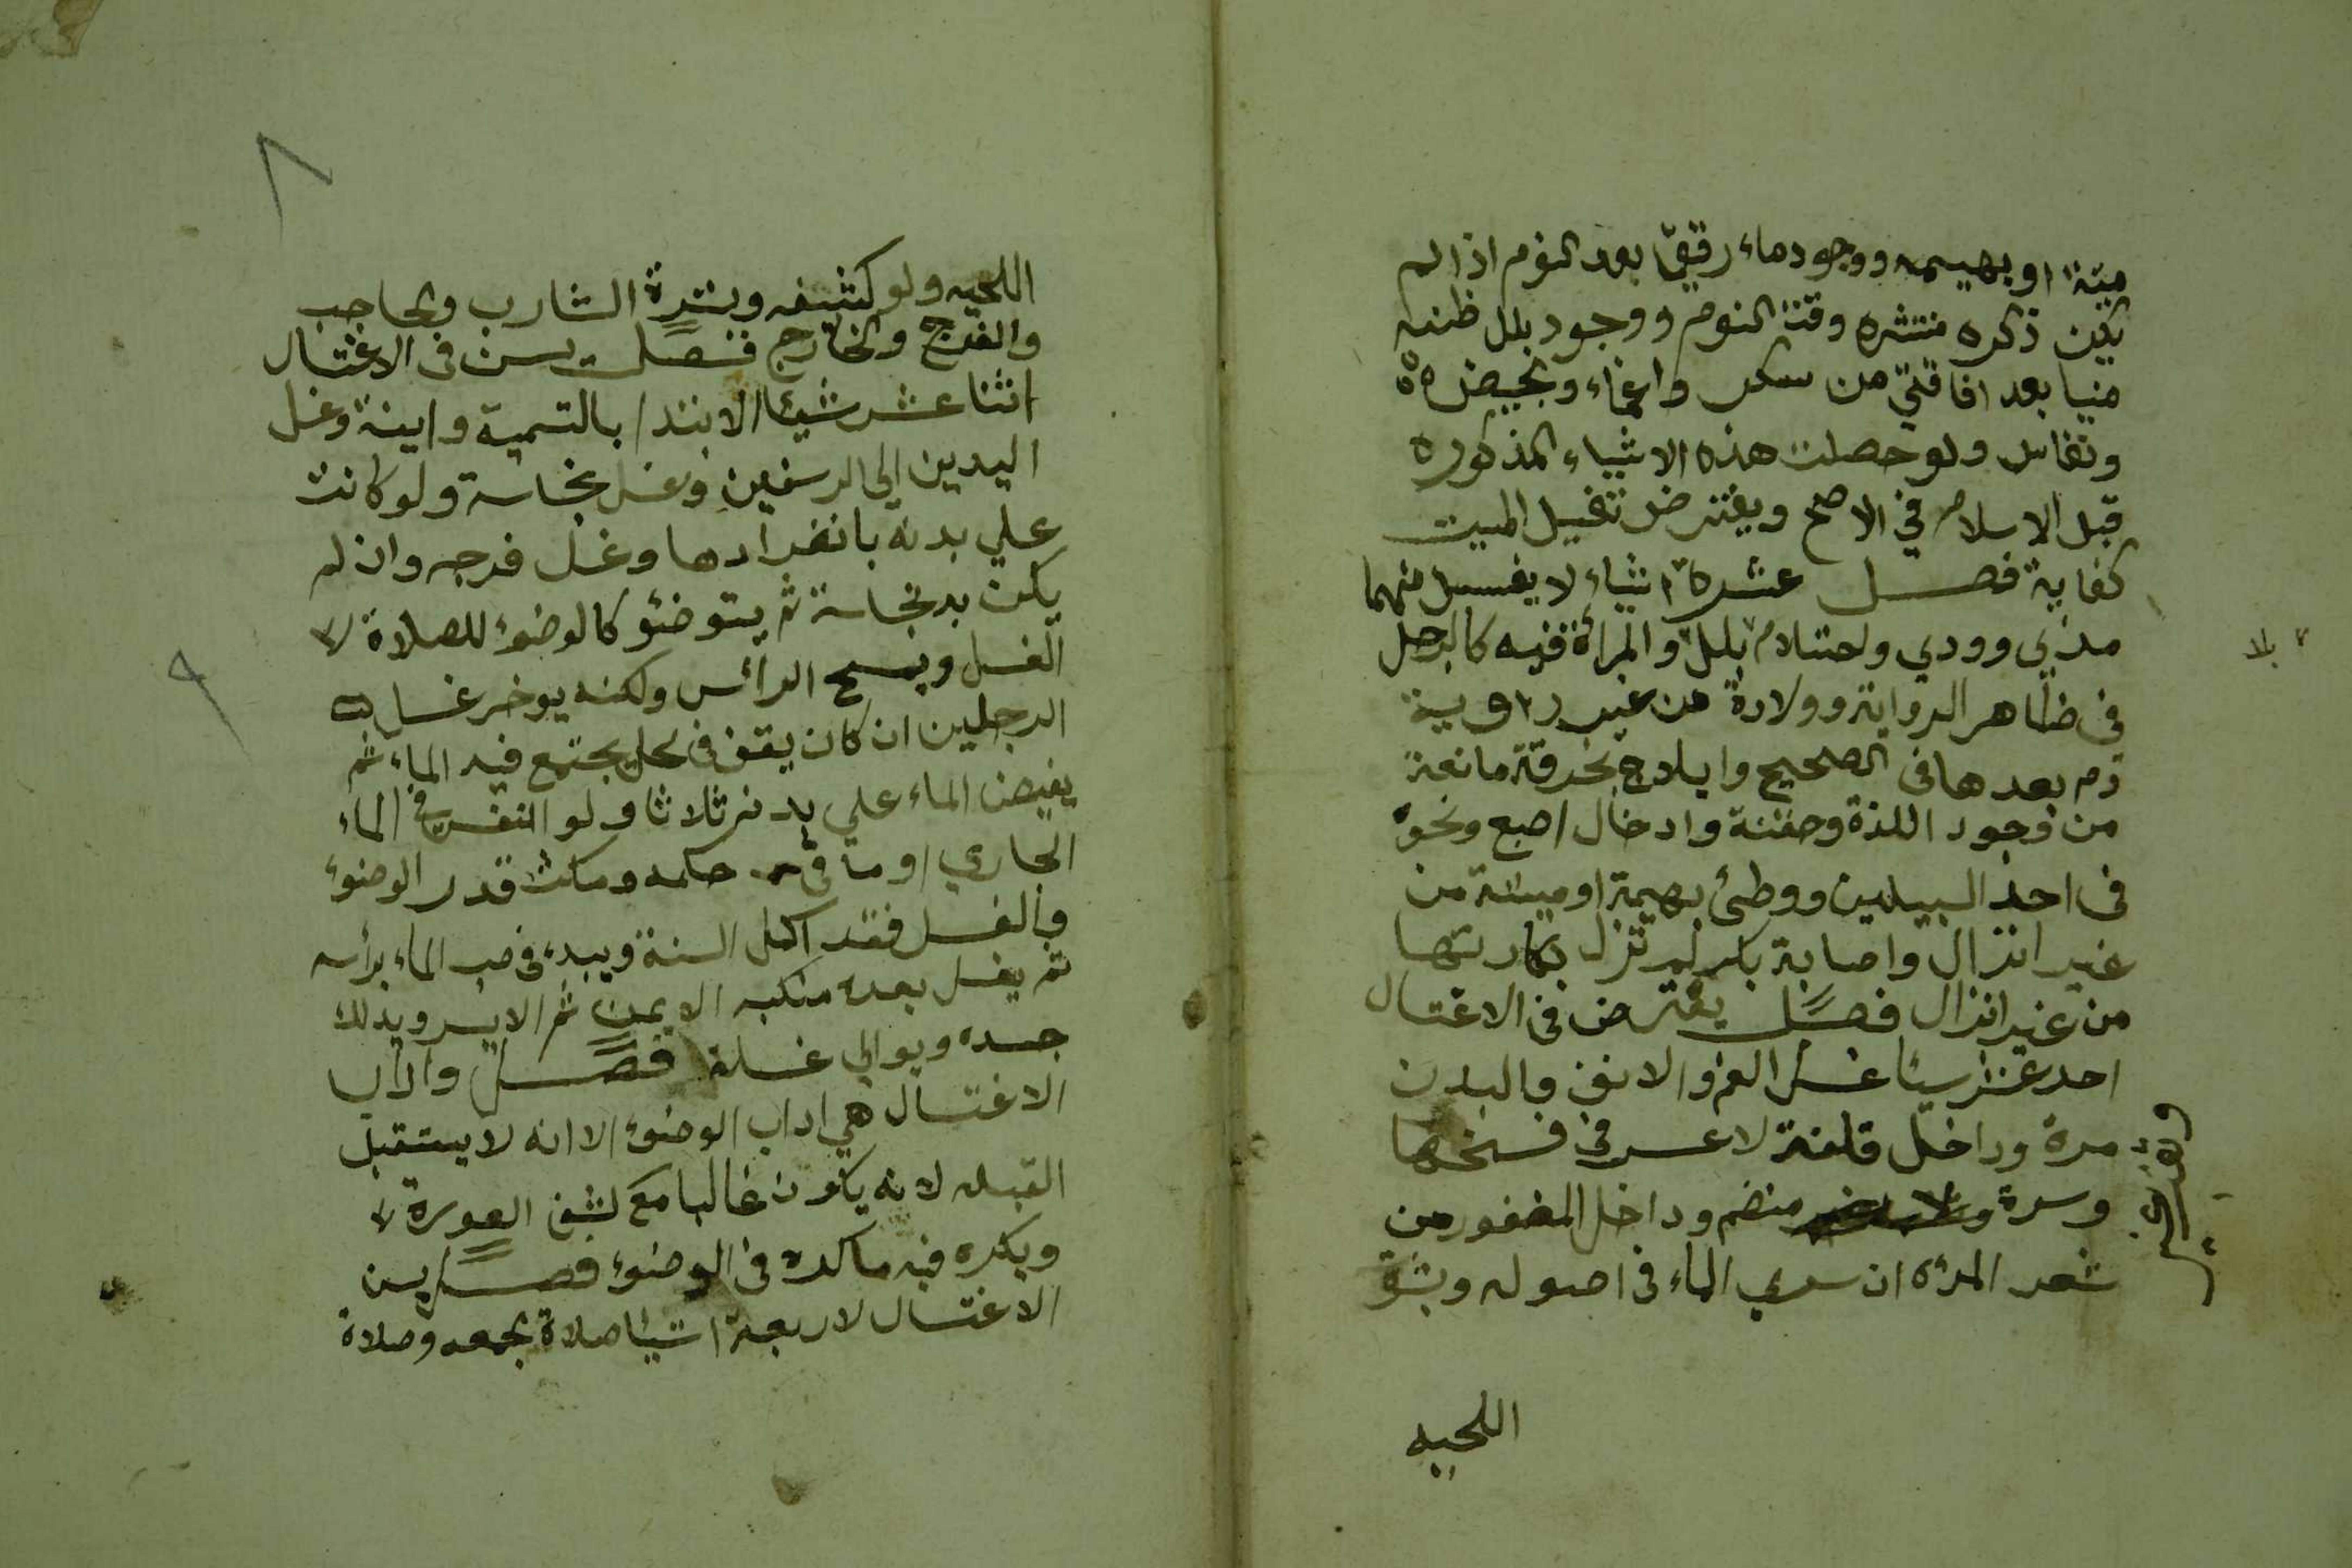 ميتة او بهيمه ووجود ماء رقيق بعد النوم اذا لم
يكن ذكره منتشره وقت النوم ووجود بلل ظنه
منيا بعد افاقته من سكر واغماء وبحيض
ونفاس ولو حصلت هذه الاشياء المذكوره
قبل الاسلام في الاصح ويفترض تغسيل الميت
كفاية فصل عشرة اشياء لا يغسل منهما
مذي وودي واحتلام بلل والمرأة فيه كالرجل
٢ بلا
في ظاهر الرواية وولادة من غير روية
دم بعدها في الصحيح وايلاج بخرقة مانعة
من وجود اللذة وحقنة وادخال اصبع ونحوه
في احد السبيلين ووطئ بهيمة او ميتة من
غير انزال واصابة بكر لم تزل بكارتها
من غير انزال فصل يفترض في الاغتسال
احد عشر شيئا غسل الفم والانف والبدن
مرة وداخل قلفة لا عسر في فسخها
وسرة وثقب غير منضم وداخل المضفور من
شعر المرأه ان سري الماء في اصوله وبشرة
اللحيه
٨
اللحيه ولو كثيفه وبشرة الشارب والحاجب
والفرج والخارج فصل يسن في الاغتسال
اثنا عشر شيئا الابتداء بالتسمية والنية وغسل
اليدين الي الرسغين وغسل نجاسة ولو كانت
علي بدنه بانفرادها وغسل فرجه وان لم
يكن به نجاسة ثم يتوضئو كالوضوء للصلاة لا
٩
الغسل ويمسح الرأس ولكنه يوخر غسل
الرجلين ان كان يقف في محل يجتمع فيه الماء ثم
يفيض الماء علي بدنه ثلاثا ولو انغمس في الماء
الجاري او ما في حكمه ومكث قدر الوضوء
والغسل فقد اكمل السنة ويبدء في صب الماء برأسه
ثم يغسل بعده منكبه الايمن ثم الايسر ويدلك
جسده ويوالي غسله فصل واداب
الاغتسال هي اداب الوضوء الا انه لا يستقبل
القبله لانه يكون غالبا مع كشف العورة
ويكره فيه ما كره في الوضوء فصل يسن
الاغتسال لاربعة اشيا صلاة الجمعه وصلاة